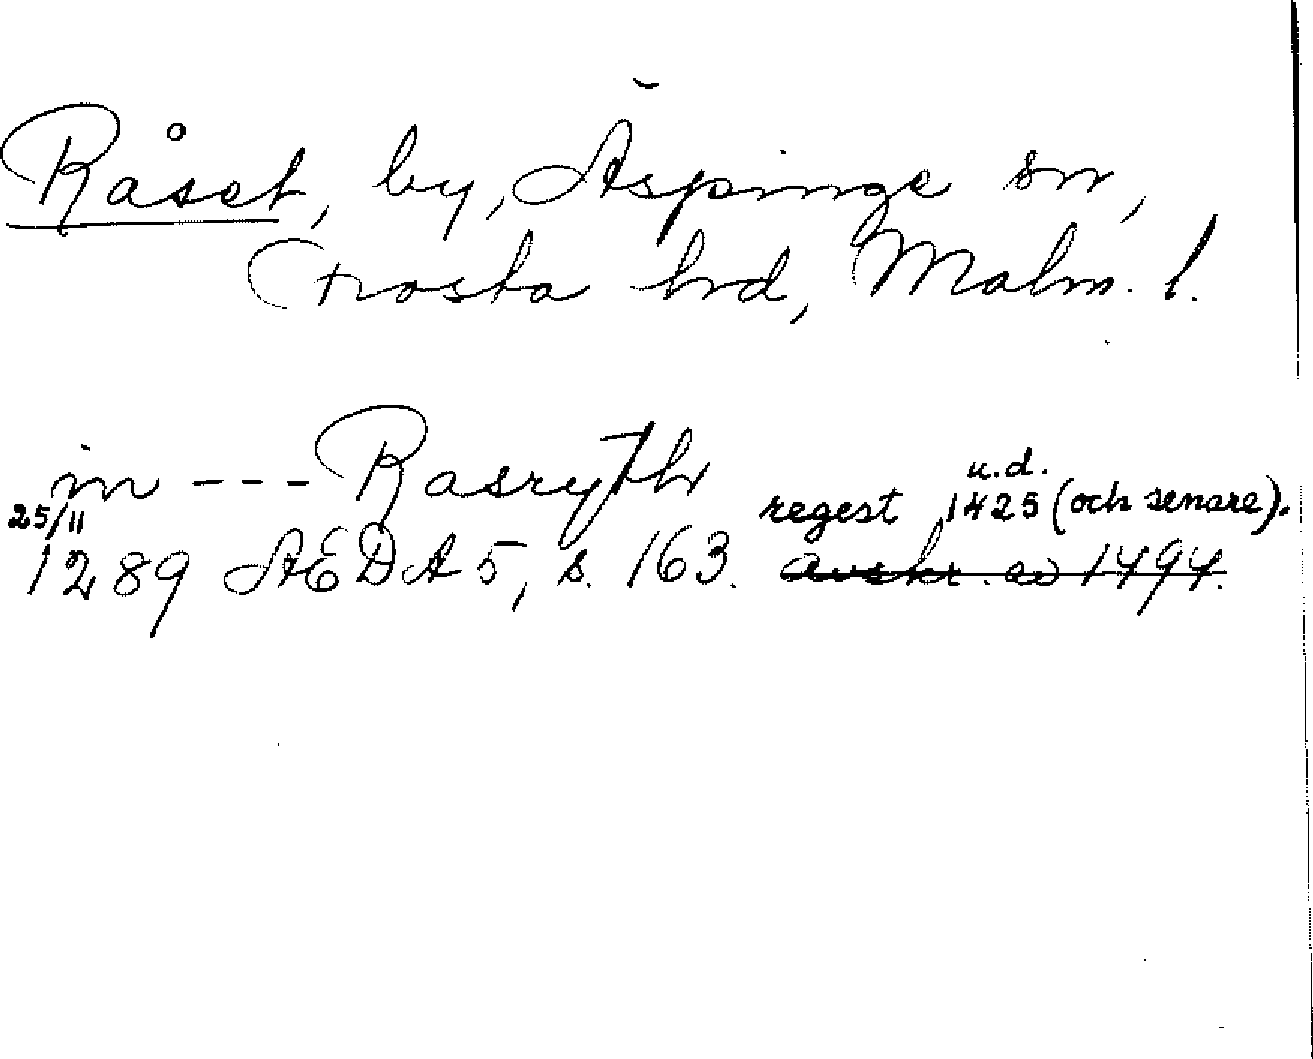 Råset, by, Äspinge sn,
Frosta hrd, Malm. l.
in --- Rasryth u.d.
25/11 regest 1425 (och senare).
1289 ÆDA 5, s. 163. avskr. av 1494.